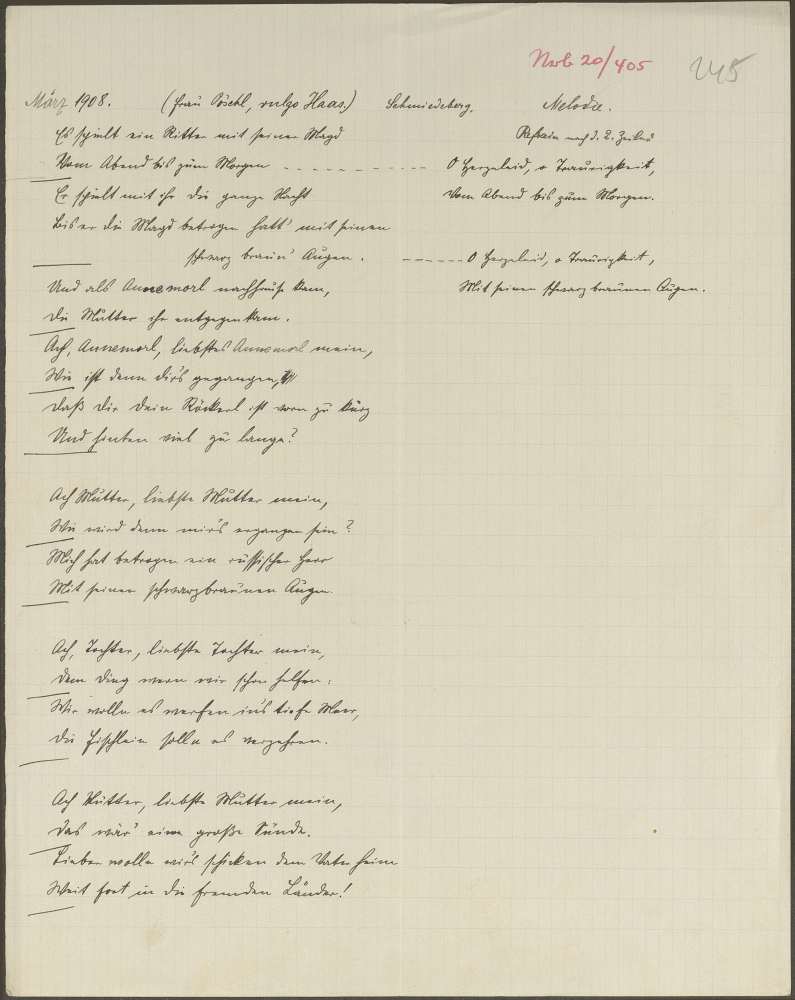 20/405 245
März 1908. (Frau Pöschl, vulgo Haas.) Schmiedeberg. Melodie.
Es spielt ein Ritter mit seiner Magd Refrain nach d. 2. Zeile
Vom Abend bis zum Morgen - - - - - - - - - - - O Herzeleid, o Traurigkeit,
Er spielt mit ihr die ganze Nacht Vom Abend bis zum Morgen.
Bis er die Magd betrogen hatt' mit seinen
schwarz braun' Augen. - - - - - - O Herzeleid, o Traurigkeit,
Und als Annemorl nachhause kam, Mit seinen schwarz braunen Augen.
Die Mutter ihr entgegen kam.
Ach, Annemorl, liebstes Annemorl mein,
Wie ist denn dir's gegangen,
Daß dir dein Röckerl ist vorn zu kurz
Und hinten viel zu lange?
Ach Mutter, liebste Mutter mein,
Wie wird denn mir's ergangen sein?
Mich hat betrogen ein russischer Herr
Mit seinen schwarzbraunen Augen.
Ach, Tochter, liebste Tochter mein,
Dem Ding wern wir schon helfen:
Wir wolln es werfen in's tiefe Meer,
Die Fischlein solln es verzehren.
Ach Mutter, liebste Mutter mein,
Das wär' eine große Sünde.
Lieber wolln wir's schicken dem Vater heim
Weit fort in die fremden Länder!